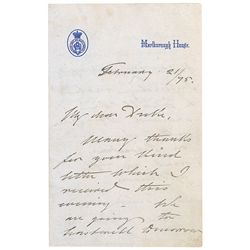 Marlborough House.
February 21/75.
My dear Duke,
Many thanks
for your kind
letter which I
received this
evening. We
are going to
tomorrow